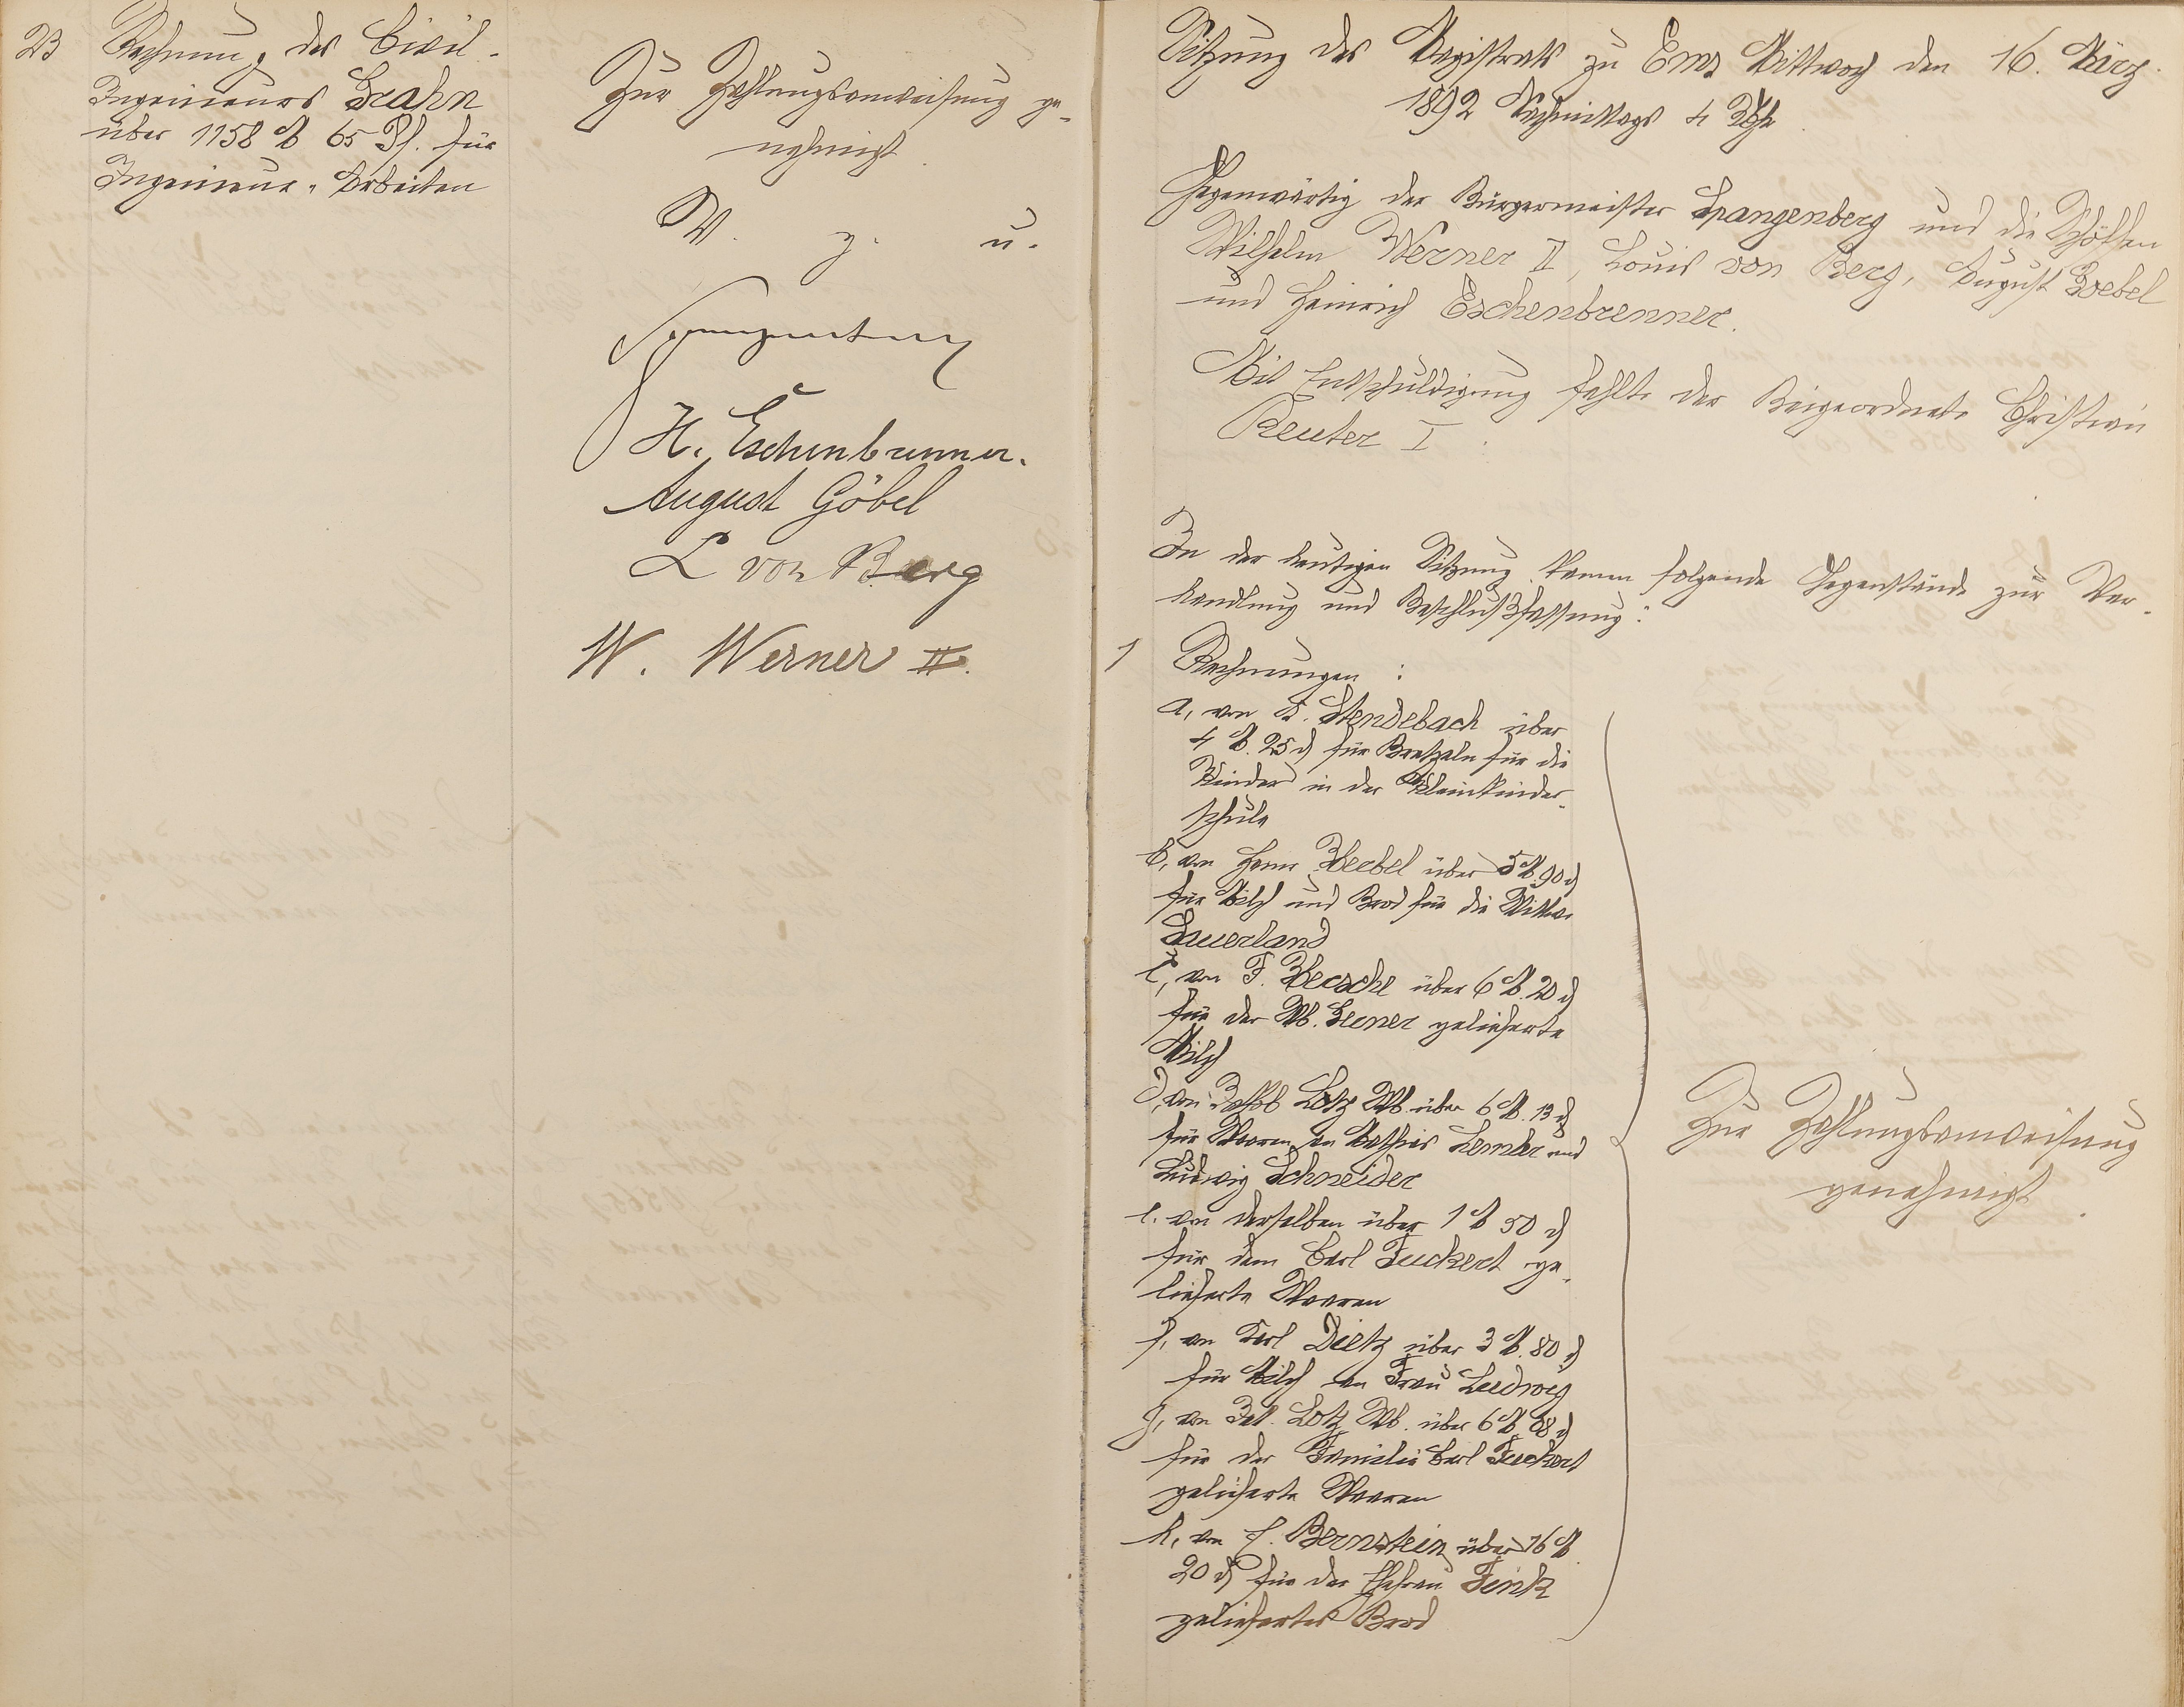 23
Rechnung des Civil-
Ingenieurs Grahn
über 1158 M 65 Pf. für
Ingenieur-Arbeiten
Zur Zahlungsanweisung ge-
nehmigt.
W. g. u.
Spangenberg
H. Eschenbrenner.
August Göbel
L von Berg
W. Werner II.
Sitzung des Magistrats zu Ems Mittwoch den 16. März
1892 Nachmittags 4 Uhr
Gegenwärtig der Bürgermeister Spangenberg und die Schöffen
Wilhelm Werner II, Louis von Berg, August Goebel
und Heinrich Eschenbrenner.
Mit Entschuldigung fehlte der Beigeordnete Christian
Reuter I.
In der heutigen Sitzung kamen folgende Gegenstände zur Ver-
handlung und Beschlußfassung:
1 Rechnungen:
a, von Stendebach über
4 M. 25 ₰ für Bretzeln für die
Kinder in der Kleinkinder-
schule
b, von Herm über 5 M. 90 ₰
für Milch und Brod für die Wittwe
Sauerland
c, von F. über 6 M. 20 ₰
für der Wb. gelieferte
Milch
d, von Jakob Lotz Wb. über 6 M. 13 ₰
für Waaren an Mathias Lemler und
Ludwig Schneider
e. von derselben über 1 M 50 ₰
für dem Carl Fuckert ge-
lieferte Waaren
f, von Karl Dietz über 3 M. 80 ₰
für Milch an Frau Ludwig
g, von Jak. Lotz Wb. über 6 M 08 ₰
für der Familie Carl Fuckert
gelieferte Waaren
h, von E. Bernstein über 16 M.
20 ₰ für der Ehefrau Fink
geliefertes Brod
Zur Zahlungsanweisung
genehmigt.